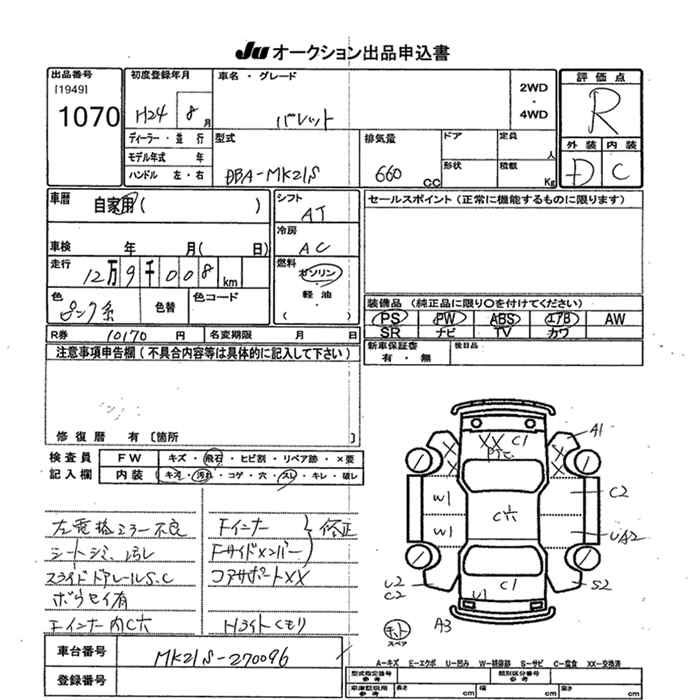 Ju オークション出品申込書
出品番号
[1949]
1070
初度登録年月
H24 8月
車名・グレード
パレット
2WD
・
4WD
評価点
R
外装 内装
D C
ディーラー・並行
モデル年式 年
ハンドル 左・右
型式
DBA-MK21S
排気量
660 CC
ドア
形状
定員 人
積載 Kg
車暦 自家用( )
車検 年 月( 日)
走行 12万9千008 km
色 ピンク系
色替
色コード
シフト
AT
冷房
AC
燃料
ガソリン
・
軽油
( )
セールスポイント(正常に機能するものに限ります)
装備品(純正品に限り〇を付けてください)
PS PW ABS エアB AW
SR ナビ TV カワ
R券 10170 円
名変期限 月 日
新車保証書
有・無
後日品
注意事項申告欄(不具合内容等は具体的に記入して下さい)
修復暦 有 〔箇所
検査員
記入欄
FW キズ・飛石・ヒビ割・リペア跡・×要
内装 キズ・汚れ・コゲ・穴・スレ・キレ・破レ
左電格ミラー不良
シートシミ、汚レ
スライドドアレールS、C
ボウセイ有
Fインナー内C穴
Fインナー
Fサイドメンバー
修正
コアサポートXX
Hライトくもり
XX C1
A1
W1
W1
C穴
C2
UA2
S2
U2
C2
C1
U1
A3
スペア
A－キズ E－エクボ U－凹み W－補修跡 S－サビ C－腐食 XX－交換済
車台番号 MK21S-270096
登録番号
型式指定番号
参考
類別区分番号
参考
車庫証明用
参考
長さ cm 幅 cm 高さ cm